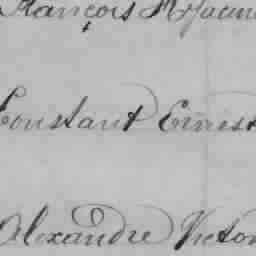 François
Constant Ernest
Alexandre Victor